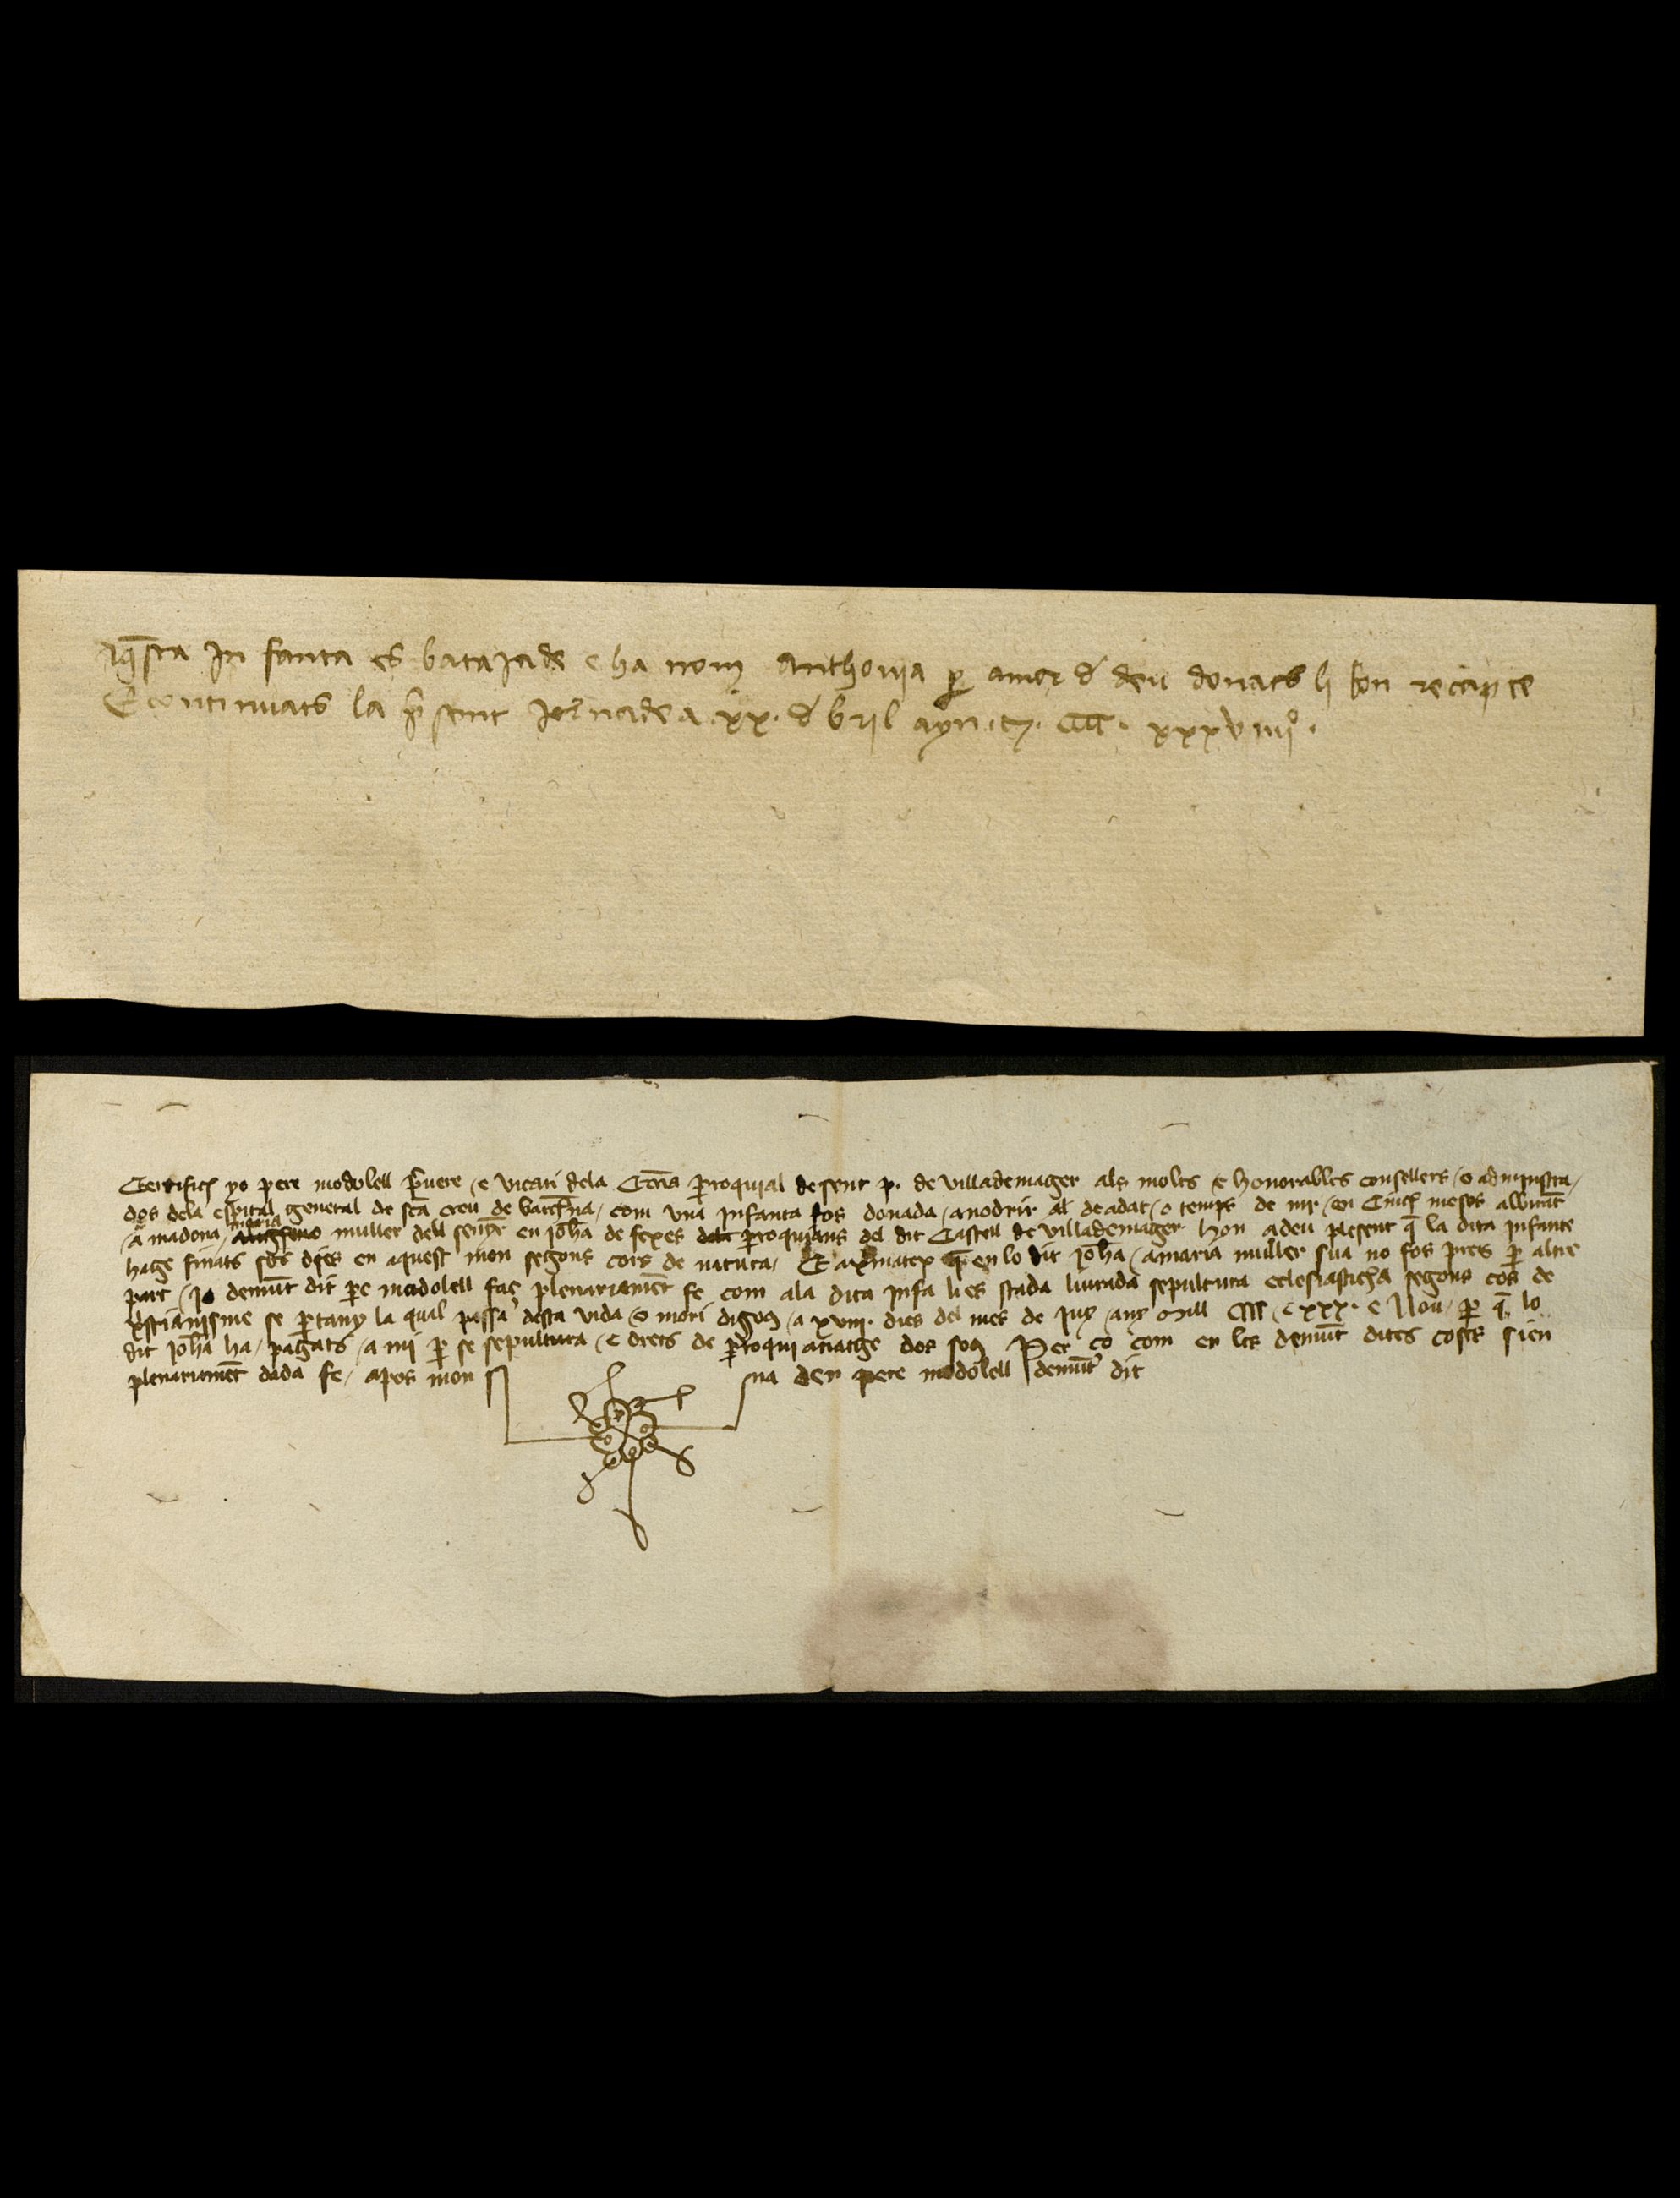 Aq̄sta Jn fanta es batajade e ha nom Anthonia p̱ amor d' deu donats li bon recapte
E continuats la p̄sent Jornade a .xx. d' bril ayn .m. cccc. xxxviiiiº.
Certifich yo pere modolell p̄uere / e vicari dela Esḡia p̱roquial de sent p. de villademager als molts e honorables consellers / o administra/
dos dela espital general de sc̄a creu de barc̄hna / com vna infanta fos donada / anodrir al de adat / o temps de mj / en Cinch mesos
/ a madona / maria muller dell senyē en joh̄a de fexes p̱roquians del dit Castell de villademager hon a deu plasent q̄ la dita infante
hage finats sos dies en aquest mon segons cors de natura / E axi matex q̄ en lo dit joh̄a / a maria muller sua no fos pres p̱ altre
part / Jo demūt dit p̱e modolell fac plenariamēt fe com ala dita infa li es stada liurada sepultura eclesiasticha segons cos de
xp̄stianisme se p̱tany la qual passa desta vida / o mori digom / a xviii. dies del mes de juy / any Mill CCCC / e xxx. e Nou / p̱ q̄ lo
dit joh̄a ha / pagats / a mi p̱ se sepultura / e drets de p̱roquianatge dos sos Per co com en les demūt dites coses sien
plenariamēt dada fe / apos mon s na den pere modolell demūt dit